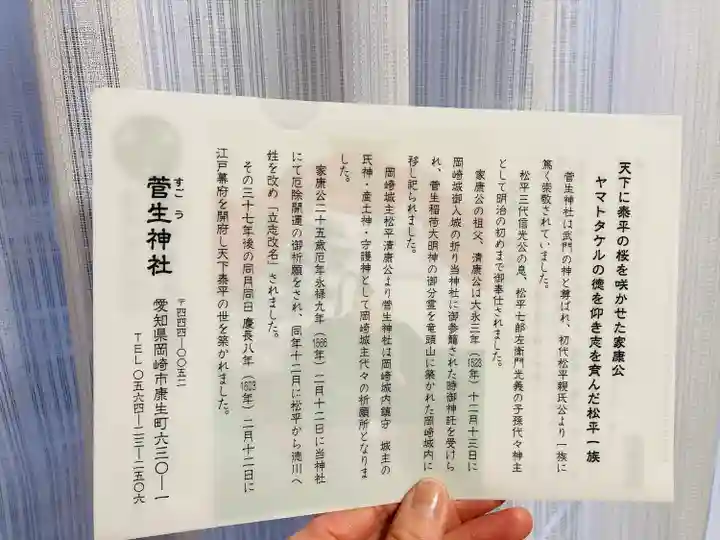 天下に泰平の桜を咲かせた家康公
ヤマトタケルの徳を仰き志を育んだ松平一族
菅生神社は武門の神と尊ばれ、初代松平親氏公より一族に
篤く崇敬されていました。
松平三代信光公の息、松平七郎左衛門光義の子孫代々神主
として明治の初めまで御奉仕されました。
家康公の祖父、清康公は大永三年(1523年)十二月十三日に
岡崎城御入城の折り当神社に御参籠された時御神託を受けら
れ、菅生稲荷大明神の御分霊を竜頭山に築かれた岡崎城内に
移し祀られました。
岡崎城主松平清康公より菅生神社は岡崎城内鎮守 城主の
氏神・産土神・守護神として岡崎城主代々の祈願所となりま
した。
家康公二十五歳厄年永禄九年(1566年)二月十二日に当神社
にて厄除開運の御祈願をされ、同年十二月に松平から徳川へ
姓を改め「立志改名」されました。
その三十七年後の同月同日慶長八年(1603年)二月十二日に
江戸幕府を開府し天下泰平の世を築かれました。
すごう
菅生神社
〒四四四ー〇〇五二
愛知県岡崎市康生町六三〇ー一
TEL〇五六四ー二三ー二五〇六